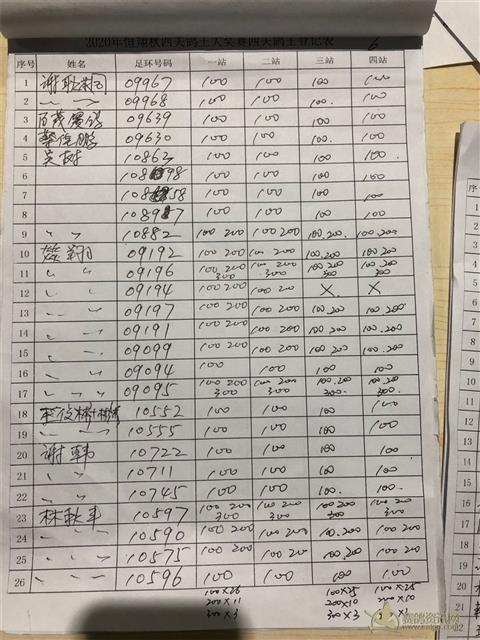 2020年恒翔秋四关鸽王大奖赛四关鸽王登记表 6
序号 姓名 足环号码 一站 二站 三站 四站
1 09967 100 100 100 100
2 〃 〃 09968 100 100 100 100
3 09639 100 100 100 100
4 09630 100 100 100 100
5 10862 100 100 100 100
6 100 100 100 100
7 100 100 100 100
8 100 100 100 100
9 〃 〃 10882 100 200 100 200 100.200 100.200
10 09192 100 200 100 200 100.200 100.200
11 〃 〃 09196 100 200 300 100 200 300 100 200 300 100.200 300
12 〃 〃 09194 100 200 100 20 X X
13 〃 〃 09197 100 200 100 200 100.200 100.200
14 〃 〃 09191 100 200 100 200 100.200 100.200
15 〃 〃 09099 100 200 100 200 100.200 100.200
16 〃 〃 09094 100 100 100 100
17 〃 〃 09095 100 200 300 100 200 300 100.200 300 100.200 300
18 10552 100 100 100 100
19 〃 〃 10555 100 100 100 100
20 谢韩 10722 100 100 100 100
21 〃 〃 10711 100 100 100 100
22 〃 〃 10745 100 100 100 100
23 林耿丰 10597 100 200 300 100 200 300 100 200 300 100 200 300
24 〃 〃 10590 100 200 100 200 100.200 100 200
25 〃 〃 10575 100 200 100 20 100.200 100 200
26 〃 〃 10596 100 100 100 100
100×26 100×25 100×25
200×11 200×10 200×10
300×3 300×3
赛鸽资讯网